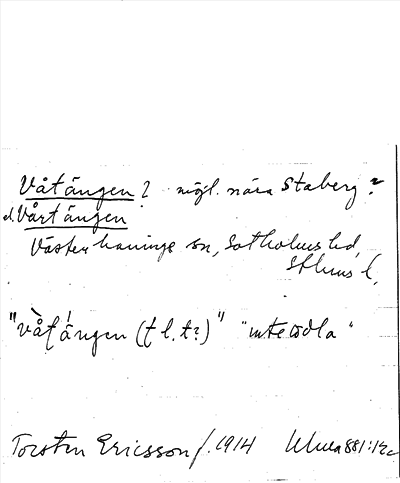 Våtängen? mögl. nära Staberg?
el. Vårtängen
Västerhaninge sn, Sotholms hd,
Sthlms l.
"Våt'ängen (t l. t?)" "inte odla"
Torsten Ericsson f. 1914 Uluma 881:12c